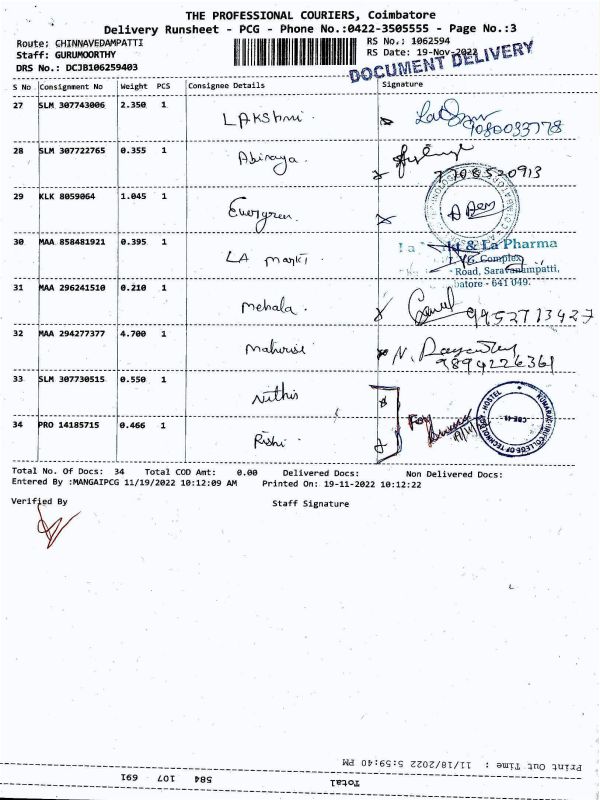 THE PROFESSIONAL COURIERS, Coimbatore
Delivery Runsheet - PCG - Phone No.:0422-3505555 - Page No.:3
Route: CHINNAVEDAMPATTI RS No.: 1062594
Staff: GURUMOORTHY RS Date: 19-Nov-2022
DRS No.: DCJB106259403
DOCUMENT DELIVERY
S No Consignment No Weight PCS Consignee Details Signature
27 SLM 307743006 2.350 1 LAKShmi.
9080033778
28 SLM 307722765 0.355 1 Abinaya.
7708520913
29 KLK 8059064 1.045 1 Evergreen.
30 MAA 858481921 0.395 1 LA markt.
& La Pharma
Complex
Road, Saravanampatti,
batore - 641 049.
31 MAA 296241510 0.210 1 Mehala.
9952713427
32 MAA 294277377 4.700 1
9894226361
33 SLM 307730515 0.550 1 Nithis
34 PRO 14185715 0.466 1 Rishi. For
KUMARAGURU COLLEGE OF TECHNOLOGY HOSTEL
Total No. Of Docs: 34 Total COD Amt: 0.00 Delivered Docs: Non Delivered Docs:
Entered By :MANGAIPCG 11/19/2022 10:12:09 AM Printed On: 19-11-2022 10:12:22
Verified By Staff Signature
Print Out Time : 11/18/2022 5:59:40 PM
Total 584 107 691